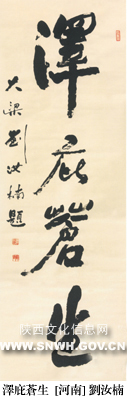 澤庇蒼生
大梁劉汝楠題
陕西文化信息网
澤庇蒼生 [河南] 劉汝楠